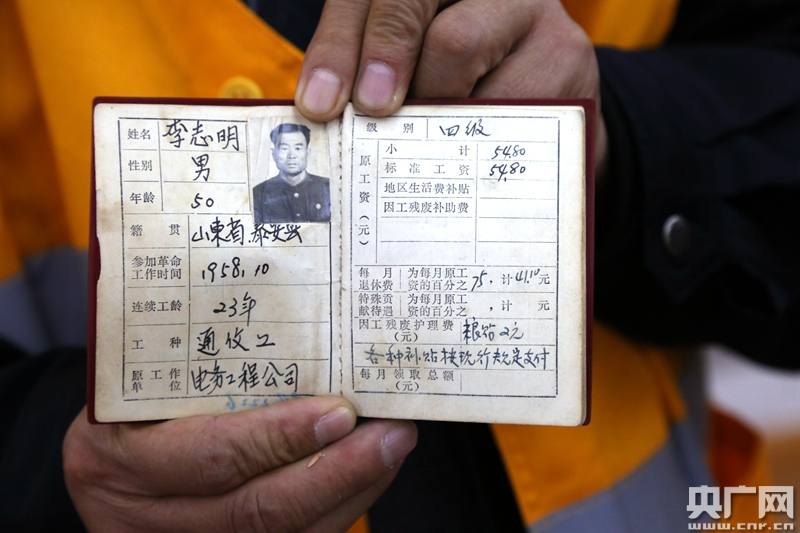 姓名 李志明
性别 男
年龄 50
籍贯 山东省.泰安县
参加革命工作时间 1958.10
连续工龄 23年
工种 通信工
原工作单位 电务工程公司
级别 四级
原工资（元）
小计 54.80
标准工资 54.80
地区生活费补贴
因工残废补助费
每月退休费 为每月原工资的百分之 75，计 41.10 元
特殊贡献待遇 为每月原工资的百分之 ，计 元
因工残废护理费（元） 粮贴2元
各种补贴按现行规定支付
每月领取总额（元）
央广网
www.cnr.cn